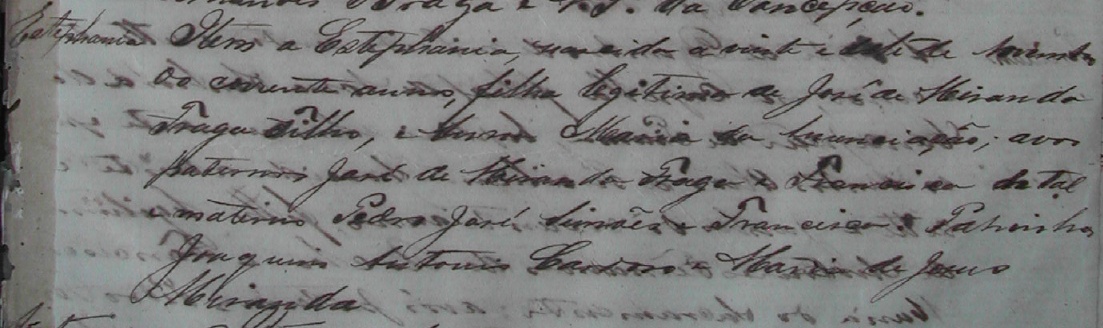 Braga e N. S. da Concepção.
Estephania Item a Estephania, nascida a vinte e sete de Novembro
do corrente anno, filha legitima de José de Miranda
Fraga Filho, e Maria da Annunciação; avos
paternos José de Miranda Fraga e Francisca de tal
e maternos Pedro José Simões e Francisca. Padrinhos
Joaquim Antonio Cardoso e Maria de Jesus
Miranda